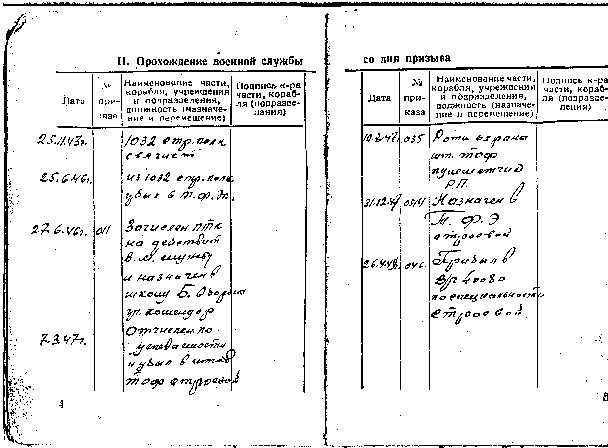 II. Прохождение военной службы
Дата
№ при-каза
Наименование части,
корабля, учреждения
и подразделения,
должность (назначе-
ние и перемещение)
Подпись к-ра
части, кораб-
ля (подразде-
ления)
25.11.43г.
1032 стр. полк
связист
25.6.46г.
из 1032 стр. полк
убыл в Т.О.Ф.
27.6.46г.
011
Зачислен
на действит
в. м. службу
и назначен в
школу Б.
уч. комендор
7.3.47г.
Отчислен по
успеваемости
и убыл в штаб
тоф строевой
4
со дня призыва
Дата
№ при-каза
Наименование части,
корабля, учреждения
и подразделения,
должность (назначе-
ние и перемещение)
Подпись к-ра
части, кораб-
ля (подразде-
ления)
035
Рота охраны
шт. тоф
Р.П.
Назначен в
строевой
Прибыл в
в/ч
по специальности
строевой